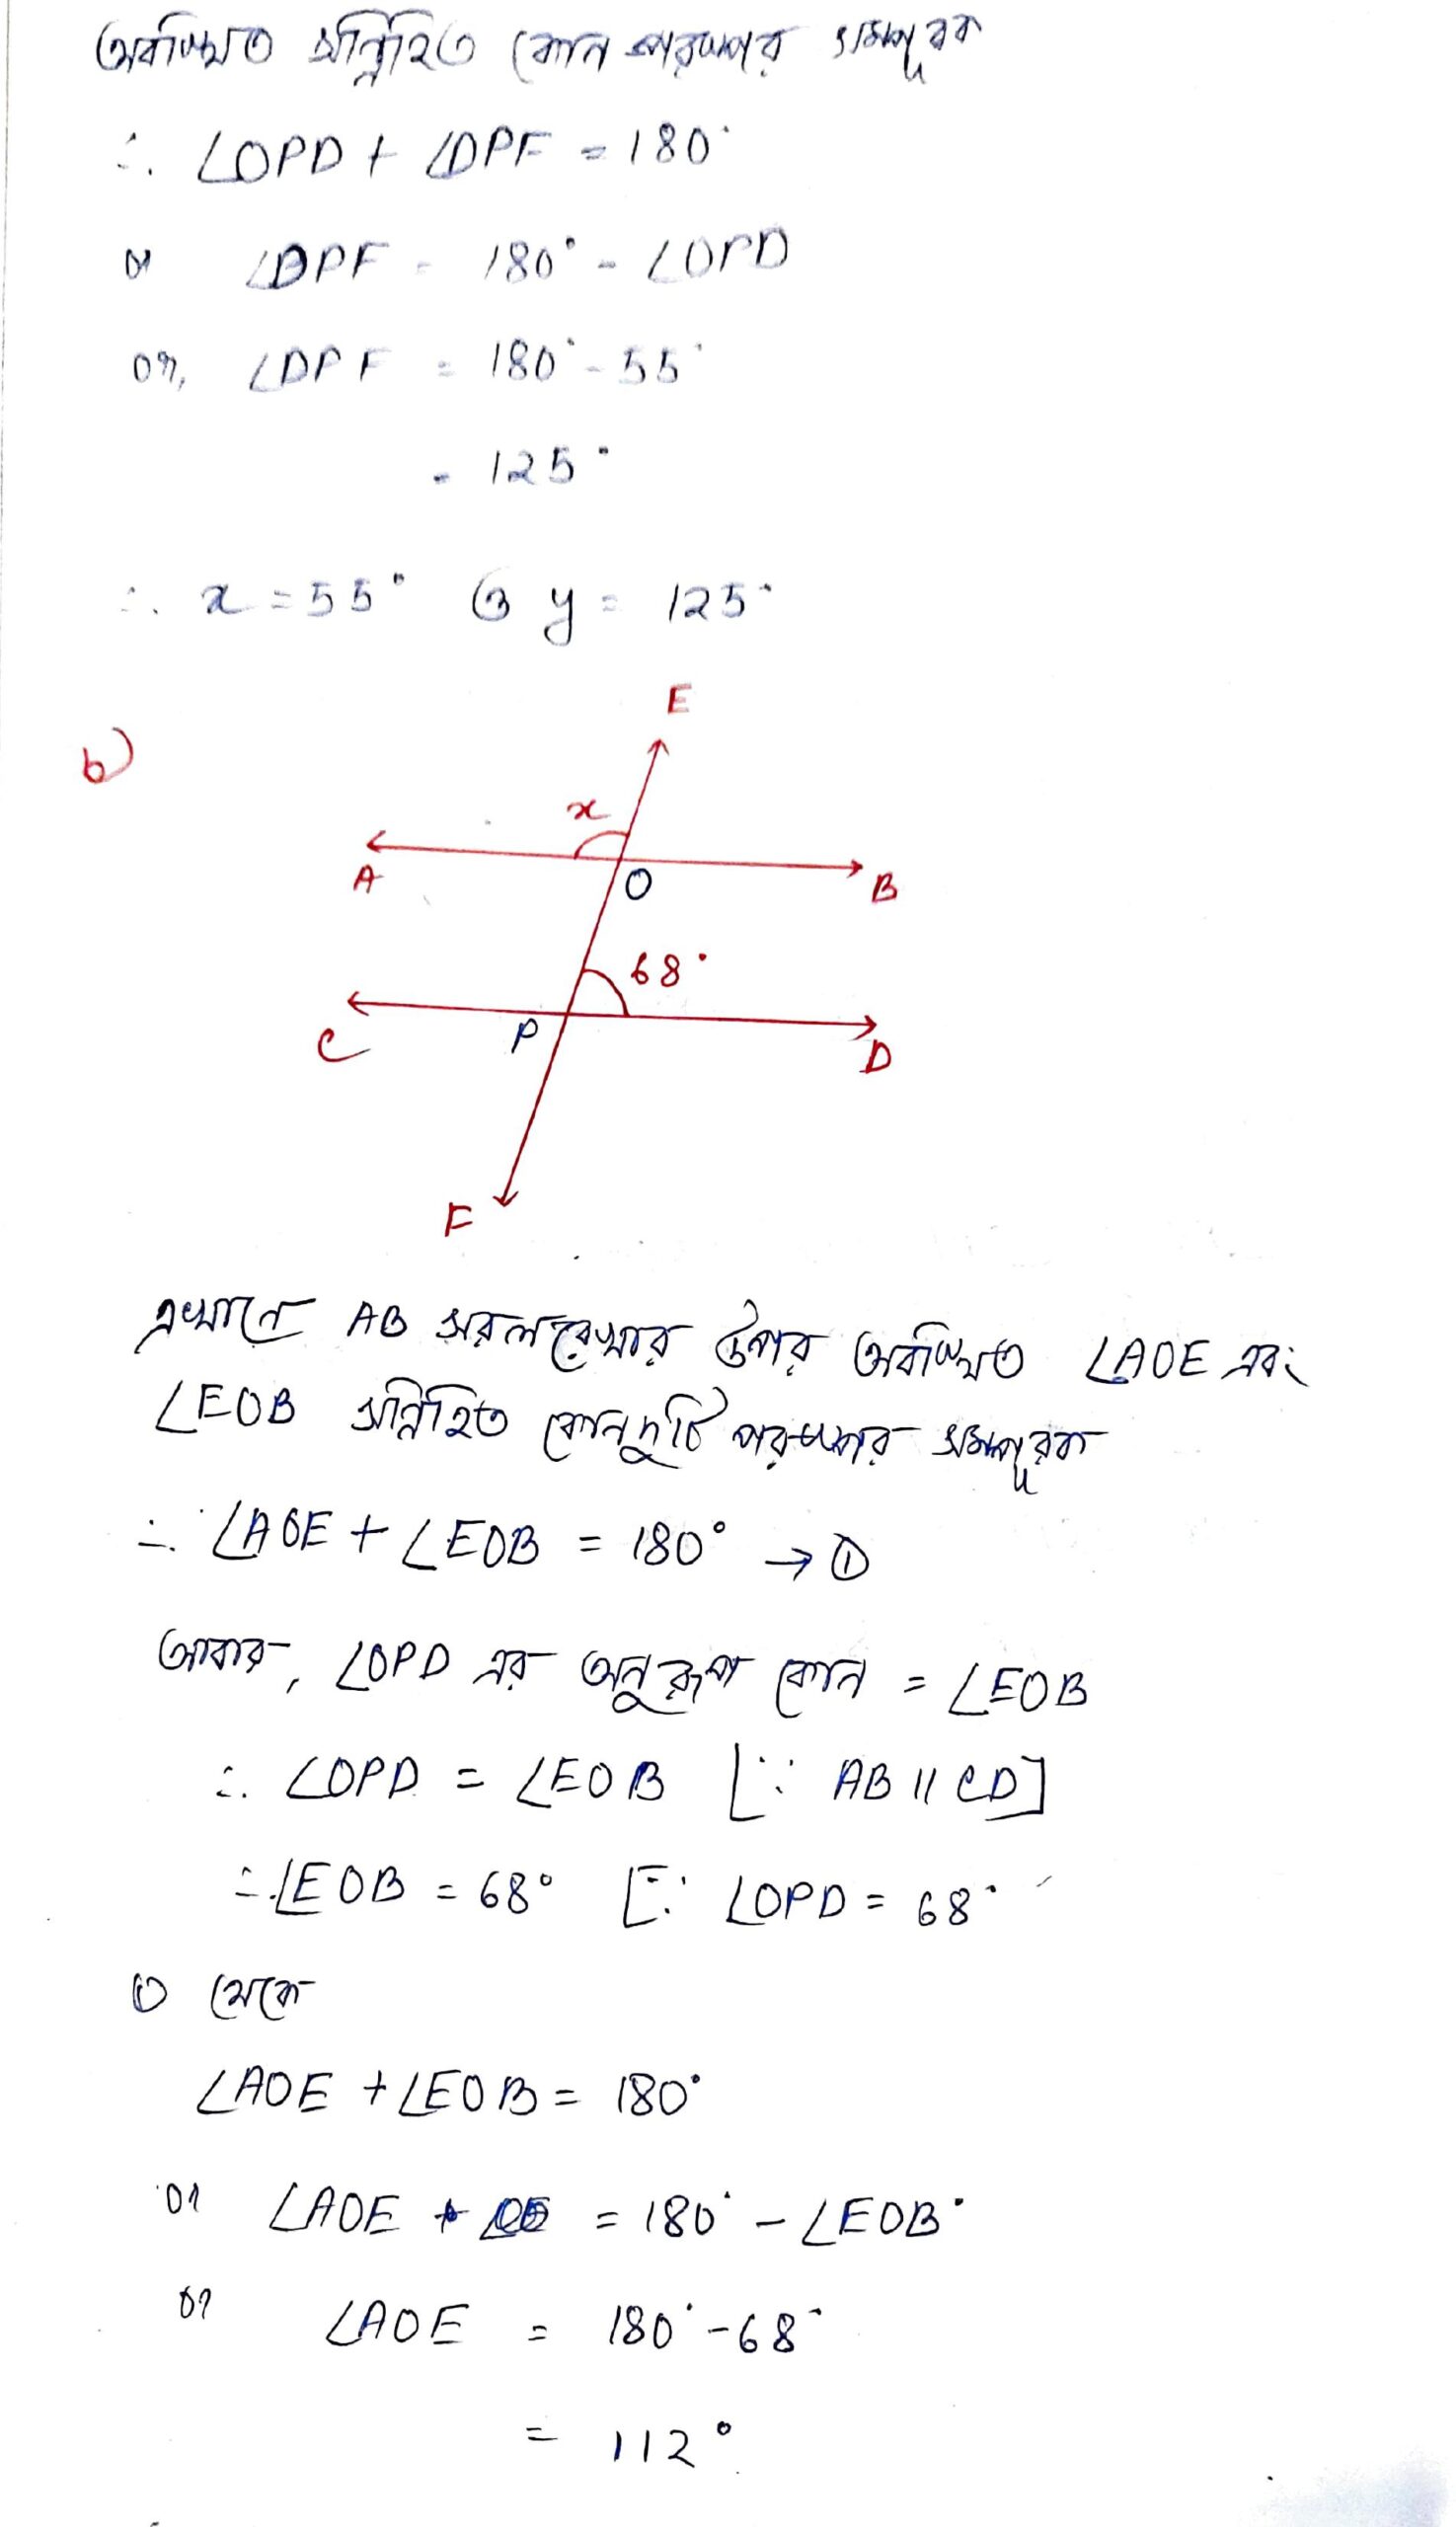 অবস্থিত সন্নিহিত কোন পরস্পর সম্পূরক
∴ ∠OPD + ∠DPF = 180°
or ∠DPF = 180° - ∠OPD
or, ∠DPF = 180° - 55°
= 125°
∴ x = 55° ও y = 125°
b)
E
x
A
O
B
68°
C
P
D
F
এখানে AB সরলরেখার উপর অবস্থিত ∠AOE এবং
∠EOB সন্নিহিত কোনদুটি পরস্পর সম্পূরক
∴ ∠AOE + ∠EOB = 180° → ①
আবার, ∠OPD এর অনুরূপ কোন = ∠EOB
∴ ∠OPD = ∠EOB [∵ AB || CD]
∴ ∠EOB = 68° [∵ ∠OPD = 68°
① থেকে
∠AOE + ∠EOB = 180°
or ∠AOE = 180° - ∠EOB°
or ∠AOE = 180° - 68°
= 112°